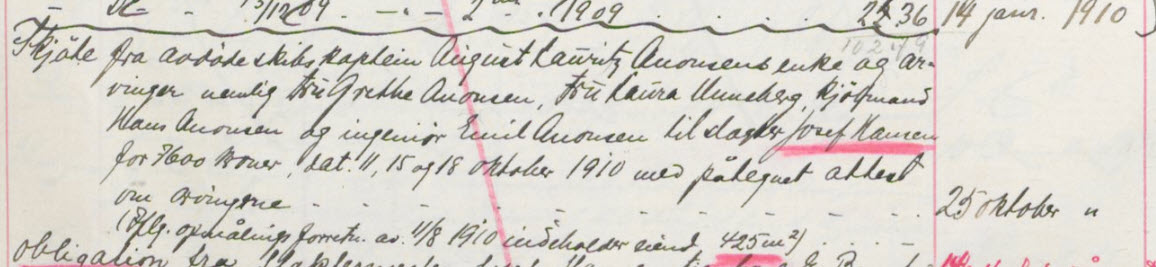 13/12 09 . - " - 2 . 1909 . . . . 2436 14 janr. 1910
Skjöte fra avdöde skibskaptein August Lauritz Anonsens enke og ar-
vinger nemlig fru Grethe Anonsen, fru Laura Unneberg, kjöpmand
Hans Anonsen og ingeniör Emil Anonsen til slagter Josef Hansen
for 7600 kroner, dat. 11, 15 og 18 oktober 1910 med påtegnet attest
om arvingerne - - - - - - - - - 25 oktober "
(Iflg. opmålings forretn. av 11/8 1910 indeholder eiend. 425 m²) . . -
obligation fra